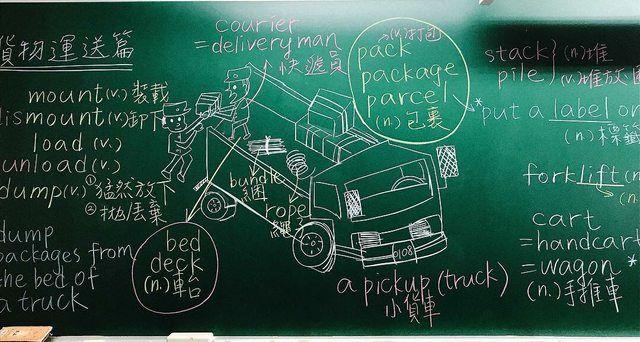 貨物運送篇
mount (v.) 裝載
dismount (v.) 卸下
load (v.)
unload (v.)
dump (v.) ①猛然放下
②拋/丟棄
dump
packages from
the bed of
a truck
courier
= deliveryman
快遞員
bundle
綑
rope
繩
bed
deck
(n.) 車台
→(v.)打包
pack
package
parcel
(n.) 包裹
0108
a pickup (truck)
小貨車
stack
pile } (n.) 堆
(v.) 堆放
*put a label on
(n.) 標籤
forklift (n.)
(n.)
cart
= handcart
= wagon *
(n.) 手推車